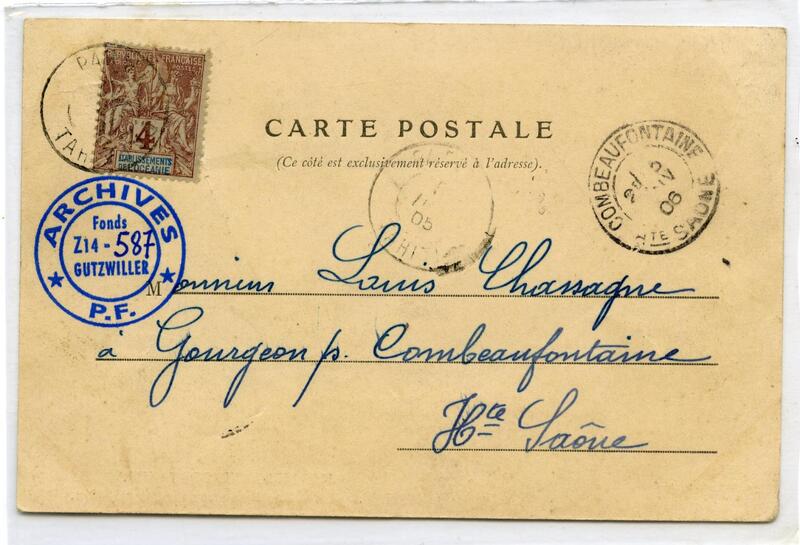 RÉPUBLIQUE FRANÇAISE
POSTES
4
ÉTABLISSEMENTS
DE L'OCÉANIE
CARTE POSTALE
(Ce côté est exclusivement réservé à l'adresse).
COMBEAUFONTAINE
2
06
HTE SAÔNE
05
ARCHIVES
Fonds
Z14 - 587
GUTZWILLER
P.F.
Monsieur Louis Chassagne
à Gourgeon p. Combeaufontaine
Hte Saône